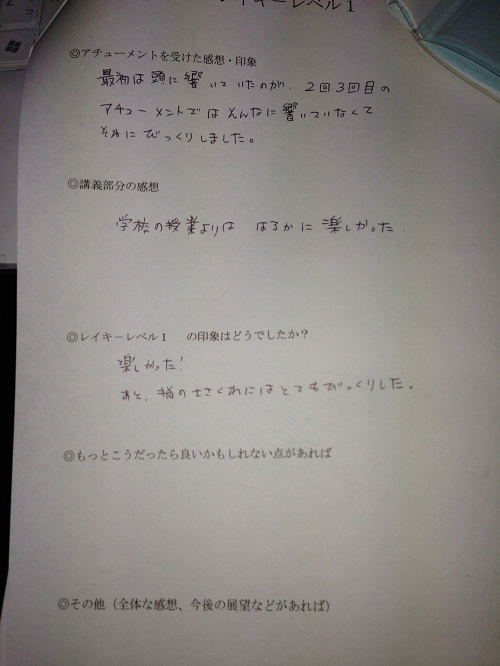 レイキーレベル1
◎アチューメントを受けた感想・印象
最初は頭に響いていたのが、2回3回目の
アチューメントではそんなに響いていなくて
それにびっくりしました。
◎講義部分の感想
学校の授業よりは はるかに楽しかった.
◎レイキーレベル1 の印象はどうでしたか?
楽しかった!
あと、指のささくれにはとてもびっくりした。
◎もっとこうだったら良いかもしれない点があれば
◎その他(全体な感想、今後の展望などがあれば)